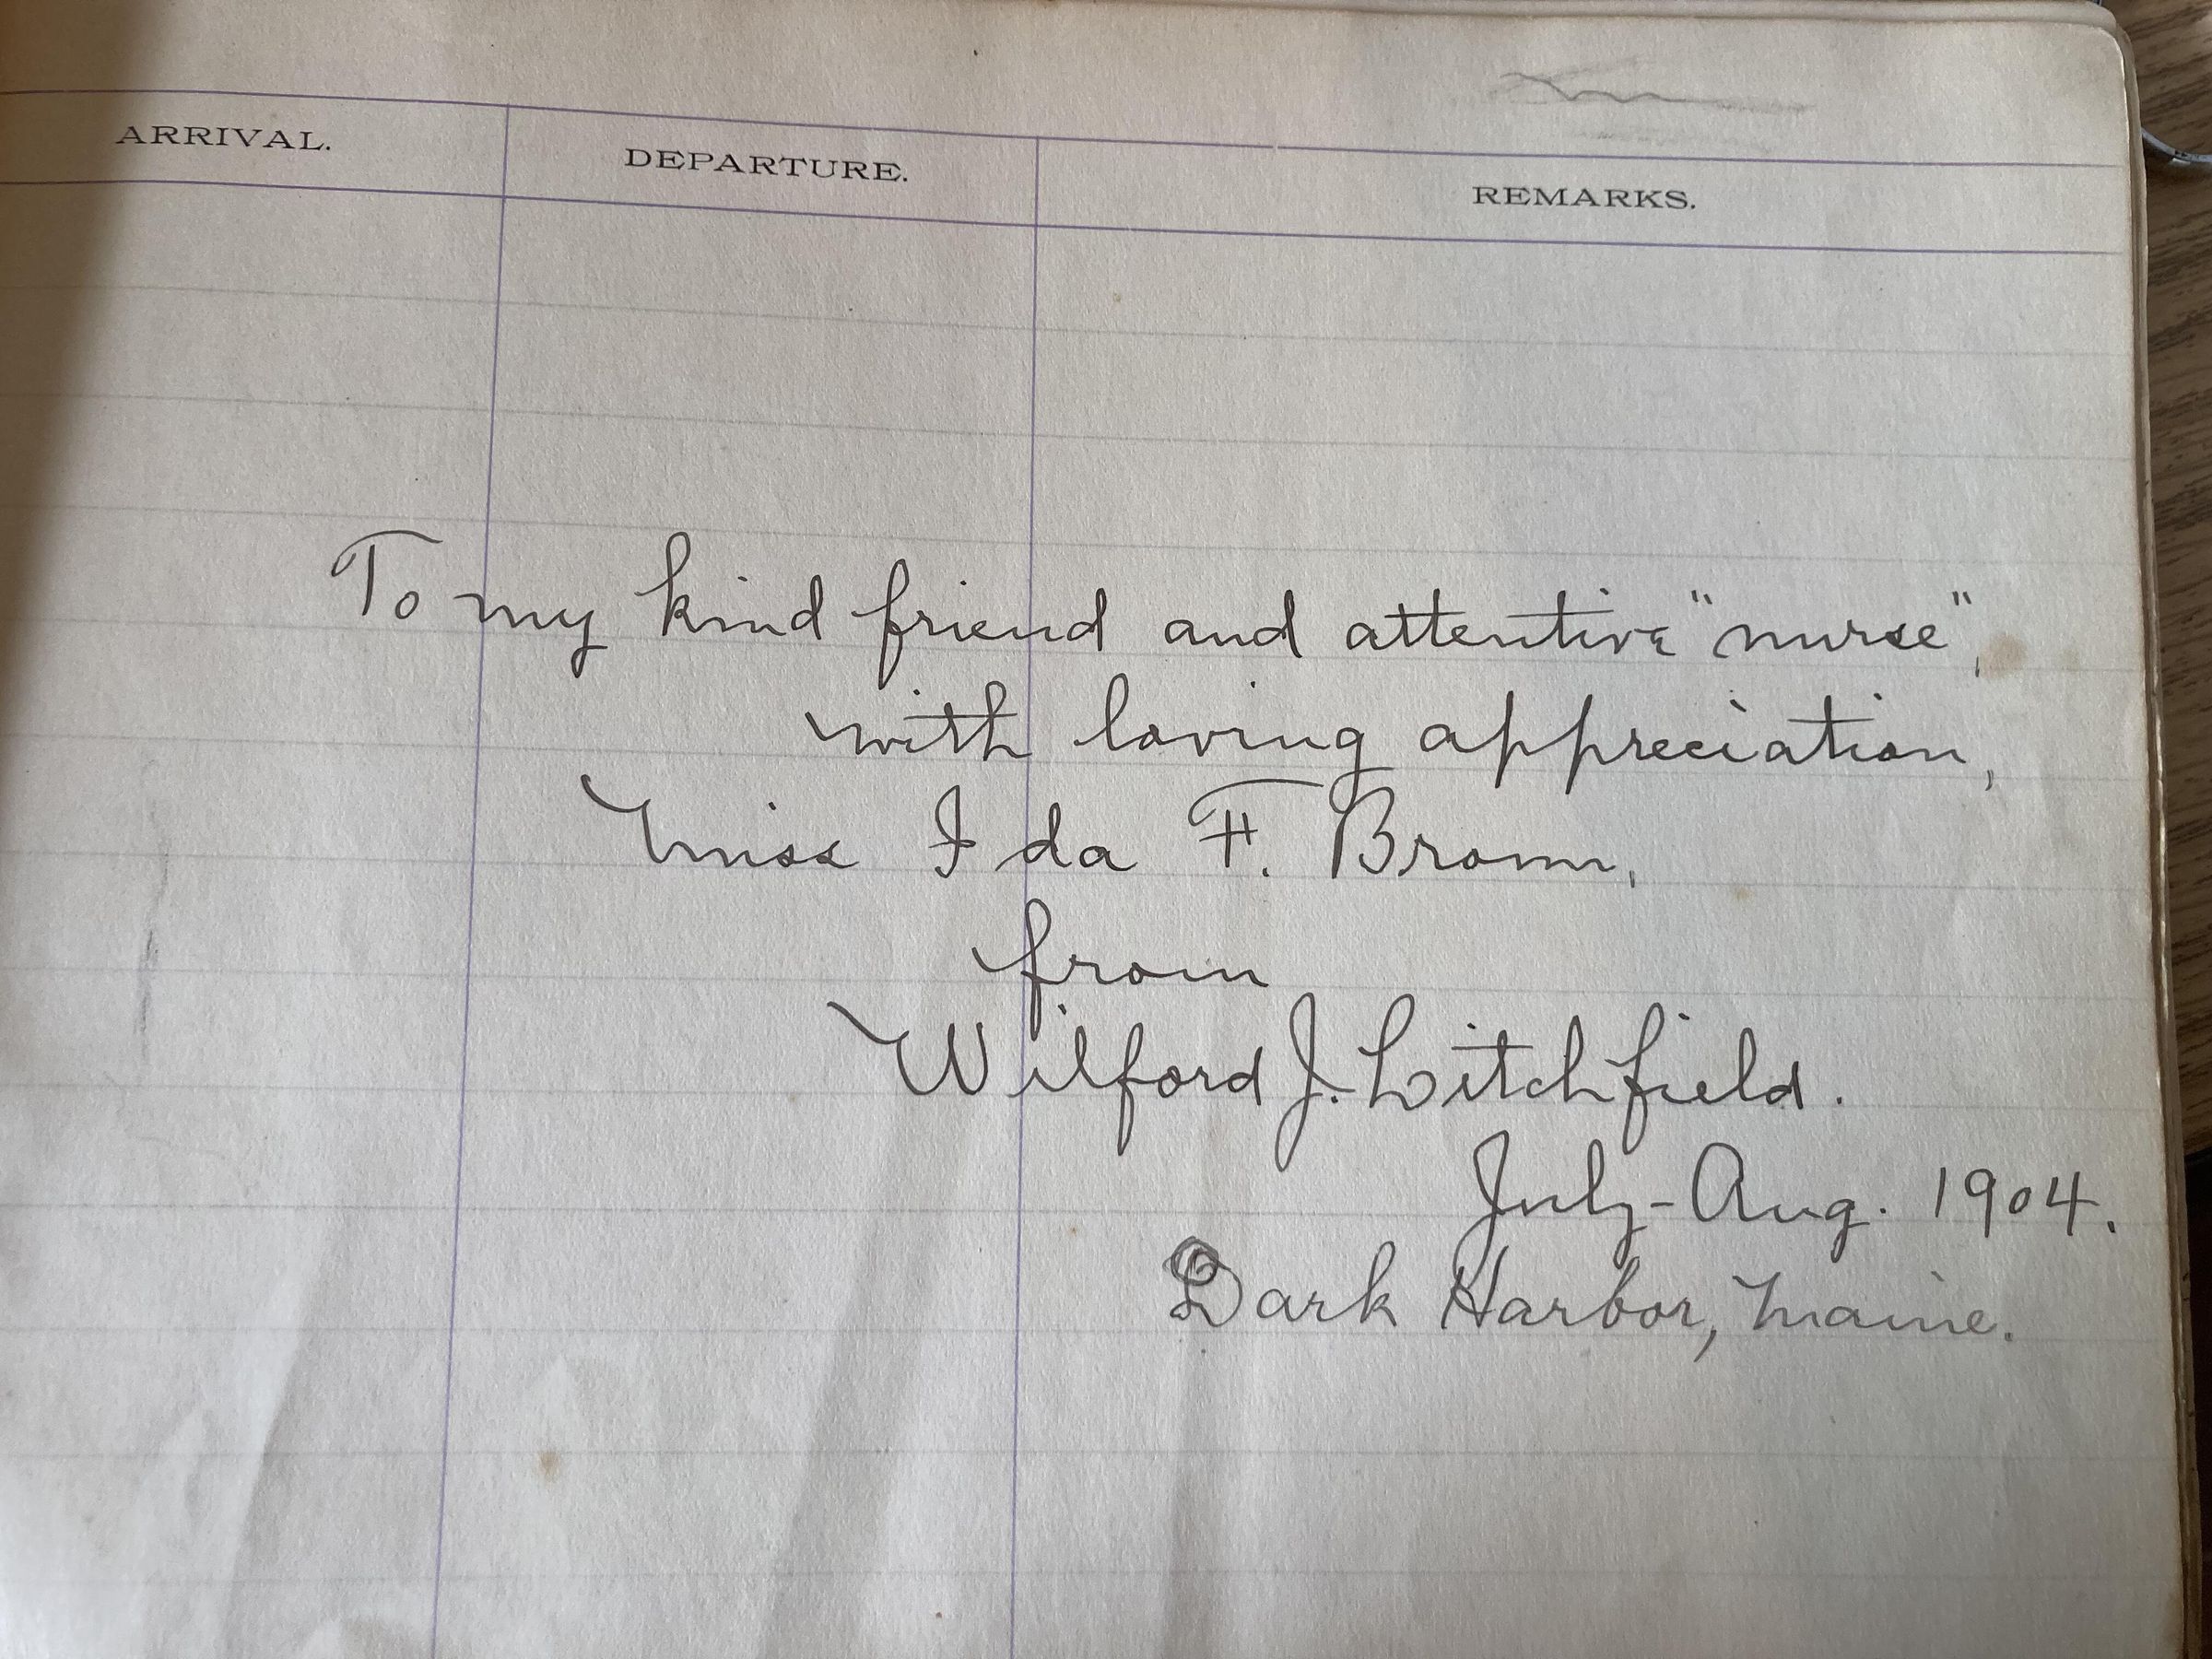 ARRIVAL. DEPARTURE. REMARKS.
To my kind friend and attentive "nurse",
with loving appreciation,
Miss Ida F. Brown,
from
Wilford J. Litchfield.
July-Aug. 1904.
Dark Harbor, Maine.